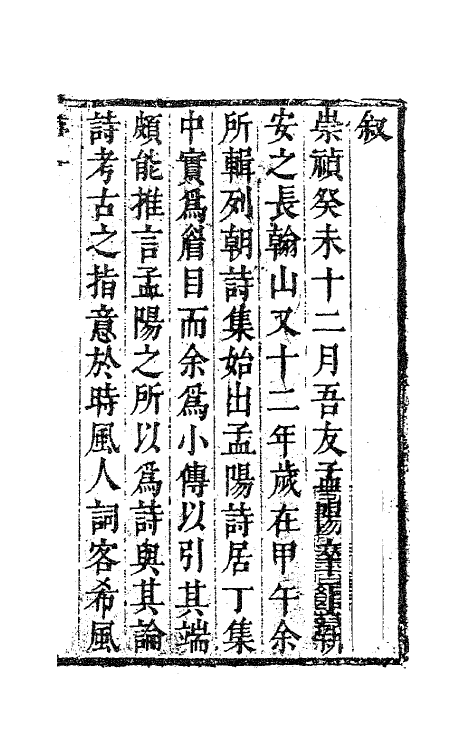 叙
崇禎癸未十二月吾友孟陽卒於新
安之長翰山又十二年歲在甲午余
所輯列朝詩集始出孟陽詩居丁集
中實爲眉目而余爲小傳以引其端
頗能推言孟陽之所以爲詩與其論
詩考古之指意於時風人詞客希風